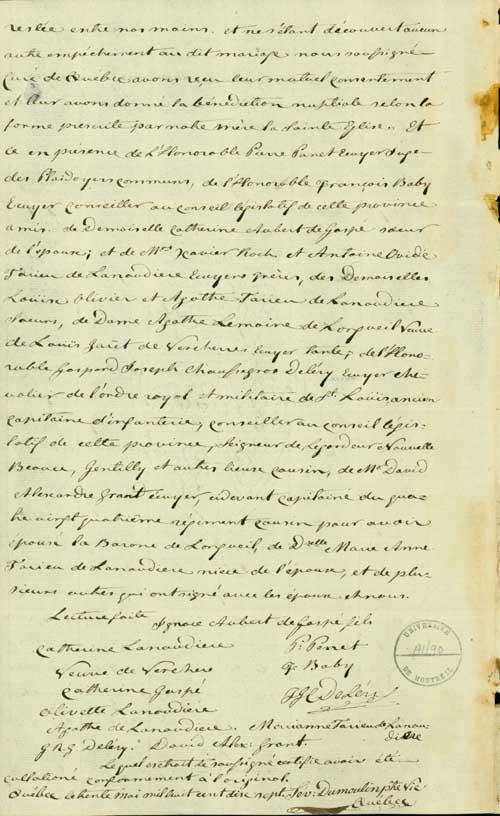 restée entre nos mains. et ne s'étant découvert aucun
autre empéchement au dit mariage nous soussigné
Curé de Québec avons reçu leur mutuel consentement
et leur avons donné la bénédiction nuptiale selon la
forme prescrite par notre mère la Sainte Eglise. Et
ce en présence de l'Honorable Pierre Panet Ecuyer Juge
des Plaidoyers communs, de l'Honorable François Baby
Ecuyer conseiller au conseil législatif de cette province
amis. de Demoiselle Catherine Aubert de Gaspé sœur
de l'époux; et de Mrs Xavier Roch et Antoine Ovide
Tarieu de Lanaudiere Ecuyers frères, des Demoiselles
Louise Olivier et Agathe Tarieu de Lanaudiere
Soeurs, de Dame Agathe Lemoine de Longueil Veuve
de Louis Jaret de Vercheres Ecuyer tante; de l'Hono-
rable Gaspard Joseph Chaussegros Deléry Ecuyer che-
valier de l'ordre royal et militaire de St. Louis ancien
capitaine d'infanterie, conseiller au conseil légis-
latif de cette province, Seigneur de Nouvelle
Beauce, Gentilly et autres lieux cousin, de Mr David
Alexandre Grant Ecuyer, cidevant capitaine du qua-
tre vingt quatrieme régiment cousin pour avoir
épousé la Barone de Longueil, de Dlle Marie Anne
Tarieu de Lanaudiere niece de l'épouse, et de plu-
sieurs autres qui ont signé avec les époux et nous.
Lecture faite Ignace Aubert de Gaspé fils
Catherine Lanaudiere P: Perret
Veuve de Verchere F: Baby
Catherine Gaspé JGC DeLéry
Olivette Lanaudiere
Agathe de Lanaudiere. Marianne Tarieu de Lanau
diere
G R G Deléry. David Alex: Grant.
Lequel extrait de soussigné certifie avoir été
collationé conformement à l'original.
Québec le trente mai mil huit cent dix sept. Dumoulin ptre Vic
Québec
UNIVERSITÉ
DE MONTRÉAL